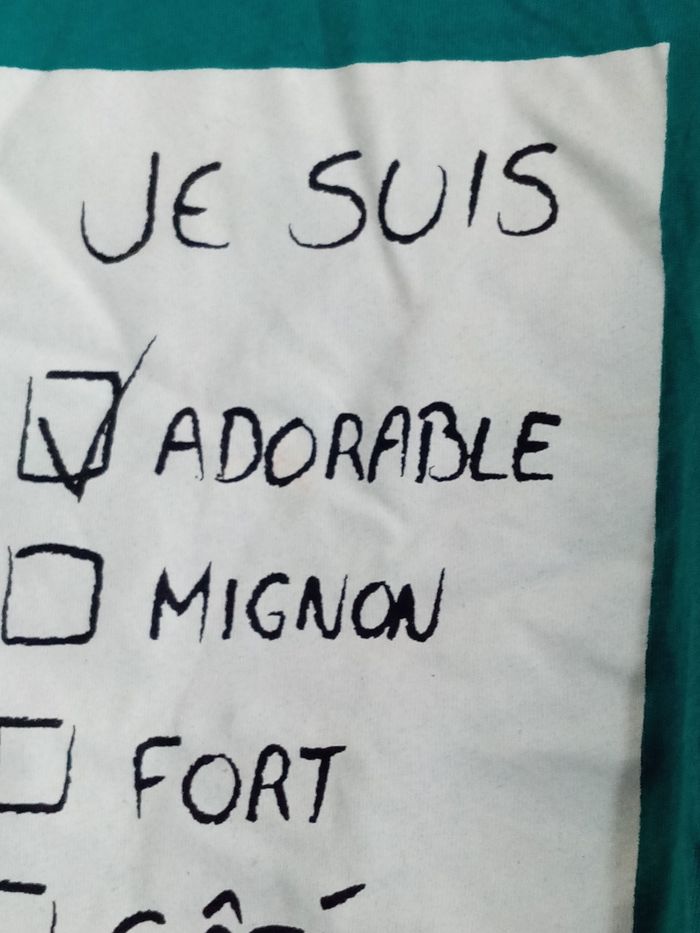 JE SUIS
ADORABLE
MIGNON
FORT